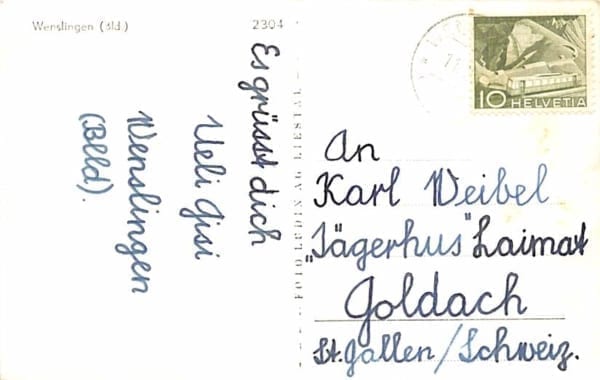 Wenslingen (Bld.)
2304
Es grüsst dich
Ueli Gisi
Wenslingen
(Blld).
FOTO LÜDIN AG LIESTAL
10 HELVETIA
An
Karl Weibel
"Jägerhus" Laimat
Goldach
St. Gallen / Schweiz.